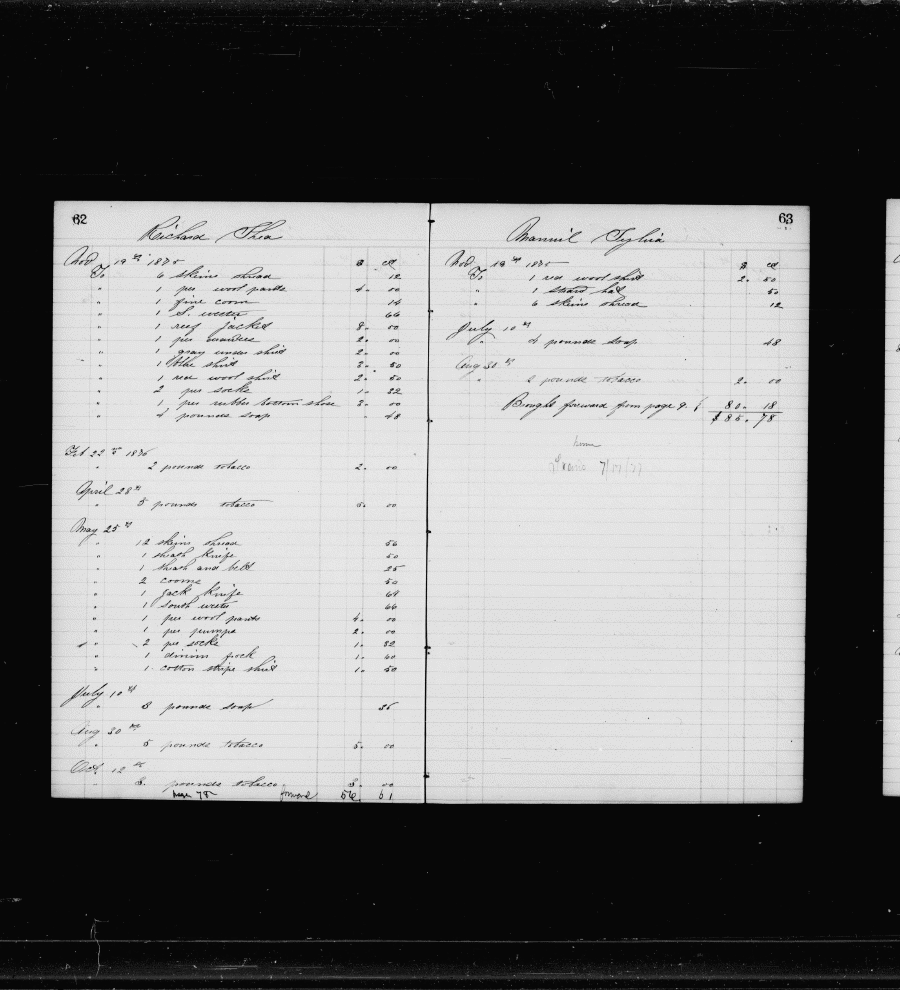 62
Richard Shea
Nov 19 th 1875 $ cts
To 6 skeins thread 12
" 1 per wool pants 4. 00
" 1 fine coom 14
" 1 S. wester 66
" 1 reef jacket 8. 00
" 1 per 2. 00
" 1 gray under shirt 2. 00
" 1 blue shirt 2. 50
" 1 red wool shirt 2. 50
" 2 per socks 1. 32
" 1 per rubber bottom shoes 3. 00
" 4 pounds soap " 48
Feb 22 1876
" 2 pounds tobacco 2. 00
April 28 th
" 5 pounds tobacco 5. 00
May 25 th
" 12 skeins thread
" 1 sheath knife 50
" 1 sheath and belt 25
" 2 cooms 50
" 1 jack knife
" 1 south wester 66
" 1 per wool pants 4. 00
" 1 per pumps 2. 00
" 2 per socks 1. 32
" 1 frock 1.
" 1 cotton stripe shirt 1. 50
July 10 th
" 3 pounds soap 36
Aug 30 th
" 5 pounds tobacco 5. 00
Oct 12 th
" 3. pounds tobacco 3. 00
page 75 forward 56. 61
63
Manuil Sylvia
Nov 19 th 1875 $ cts
To 1 red wool shirt 2. 50
" 1 straw hat 50
" 6 skeins thread 12
July 10 th
" 4 pounds soap 48
Aug 30 th
" 2 pounds tobacco 2. 00
Brought forward from page 9. 80. 18
$ 85. 78